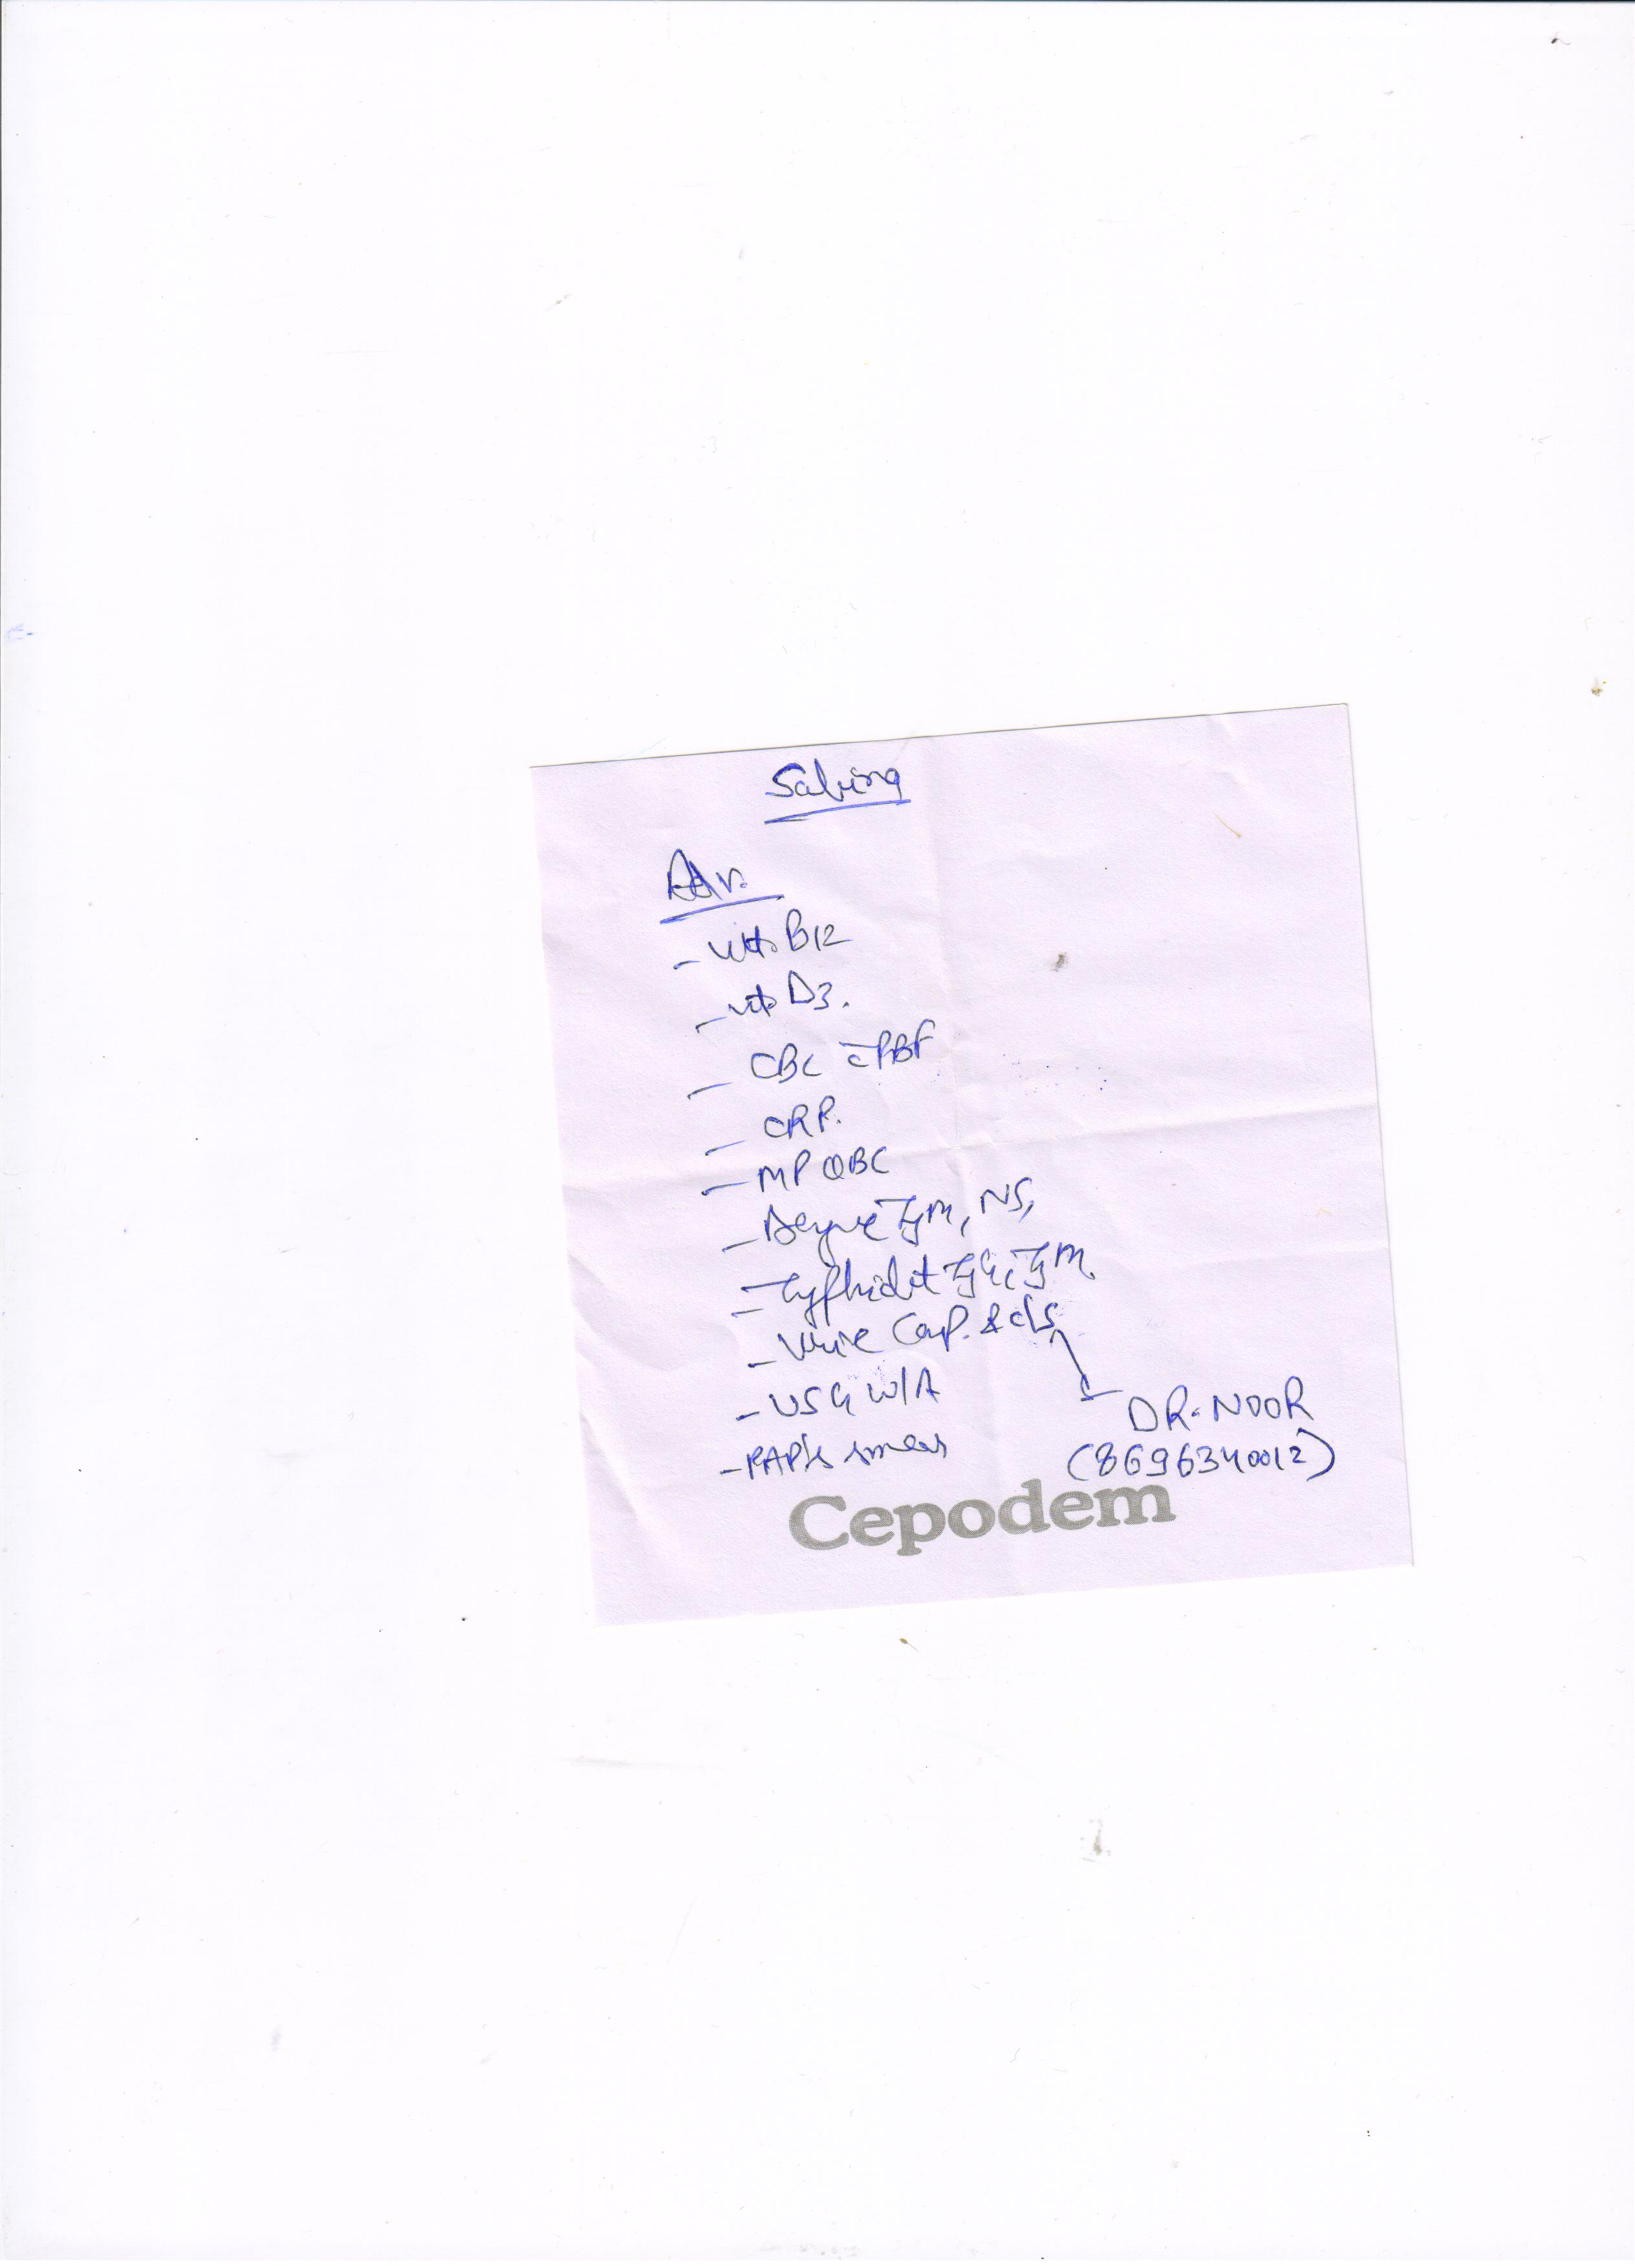 Sabina
Adv.
- Vit. B12
- Vit D3.
- CBC c̄ PBF
- CRP.
- MP QBC
- Dengue IgM, NS,
- Typhidot IgG, IgM.
- Urine Comp. & c/s
- USG W/A
- PAP's smear
DR. NOOR
(8696340012)
Cepodem